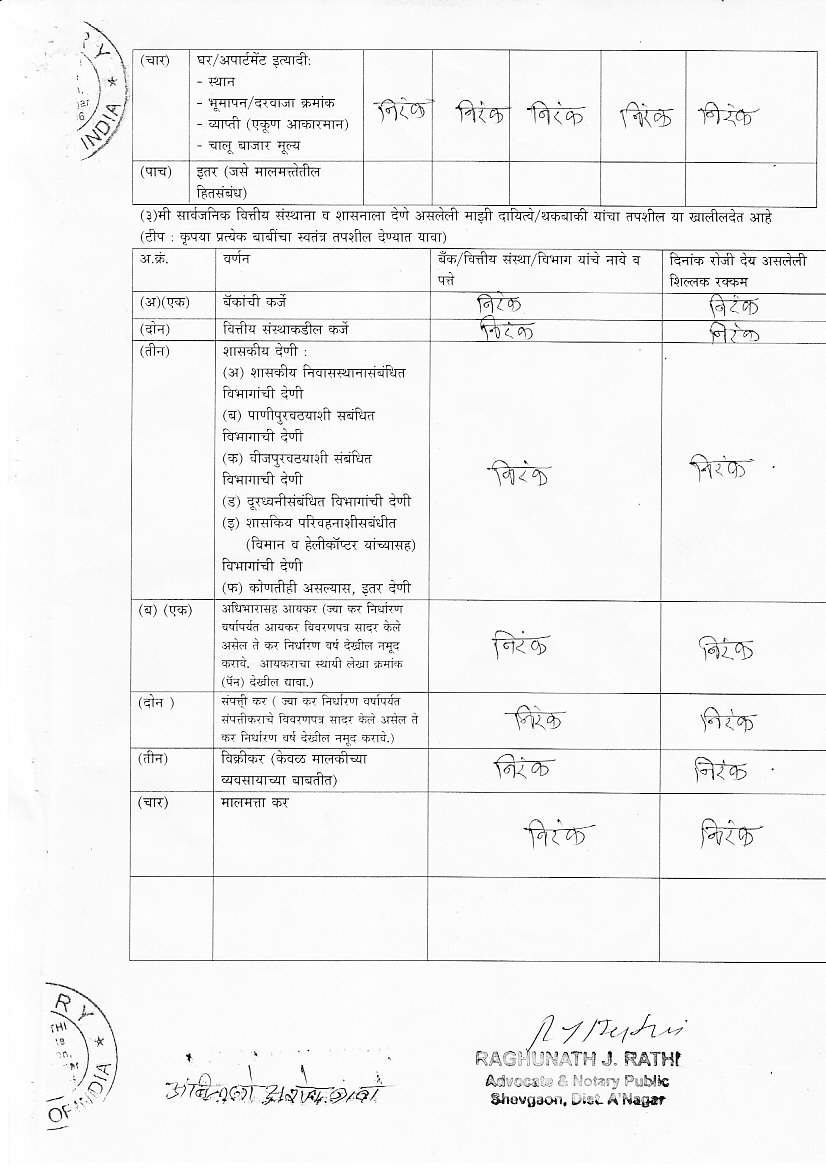 (चार) घर/अपार्टमेंट इत्यादी:
- स्थान
- भूमापन/दरवाजा क्रमांक निरंक निरंक निरंक निरंक निरंक
- व्याप्ती (एकूण आकारमान)
- चालू बाजार मूल्य
(पाच) इतर (जसे मालमत्तेतील
हितसंबंध)
(३)मी सार्वजनिक वित्तीय संस्थाना व शासनाला देणे असलेली माझी दायित्वे/थकबाकी यांचा तपशील या खालीलदेत आहे
(टीप : कृपया प्रत्येक बाबींचा स्वतंत्र तपशील देण्यात यावा)
अ.क्रं. वर्णन बँक/वित्तीय संस्था/विभाग यांचे नाये व दिनांक रोजी देय असलेली
पत्ते शिल्लक रक्कम
(अ)(एक) बँकांची कर्जे निरंक निरंक
(दोन) वित्तीय संस्थाकडील कर्जे निरंक निरंक
(तीन) शासकीय देणी :
(अ) शासकीय निवासस्थानासंबंधित
विभागांची देणी
(ब) पाणीपुरवठयाशी सबंधित
विभागाची देणी
(क) वीजपुरवठयाशी संबंधित
विभागाची देणी निरंक निरंक
(ड) दूरध्वनीसंबंधित विभागांची देणी
(इ) शासकिय परिवहनाशीसबंधीत
(विमान व हेलीकॉप्टर यांच्यासह)
विभागांची देणी
(फ) कोणतीही असल्यास, इतर देणी
(ब) (एक) अधिभारासह आयकर (ज्या कर निर्धारण
वर्षापर्यत आयकर विवरणपत्र सादर केले
असेल ते कर निर्धारण वर्ष देखील नमूद निरंक निरंक
करावे. आयकराचा स्थायी लेखा क्रमांक
(पॅन) देखील द्यावा.)
(दोन ) संपत्ती कर ( ज्या कर निर्धारण वर्षापर्यत
संपत्तीकराचे विवरणपत्र सादर केले असेल ते निरंक निरंक
कर निर्धारण वर्ष देखील नमूद करावे.)
(तीन) विक्रीकर (केवळ मालकीच्या निरंक निरंक
व्यवसायाच्या बाबतीत)
(चार) मालमत्ता कर
निरंक निरंक
RAGHUNATH J. RATHI
Advocate & Notary Public
Shevgaon, Dist. A'Nagar
INDIA
OF INDIA